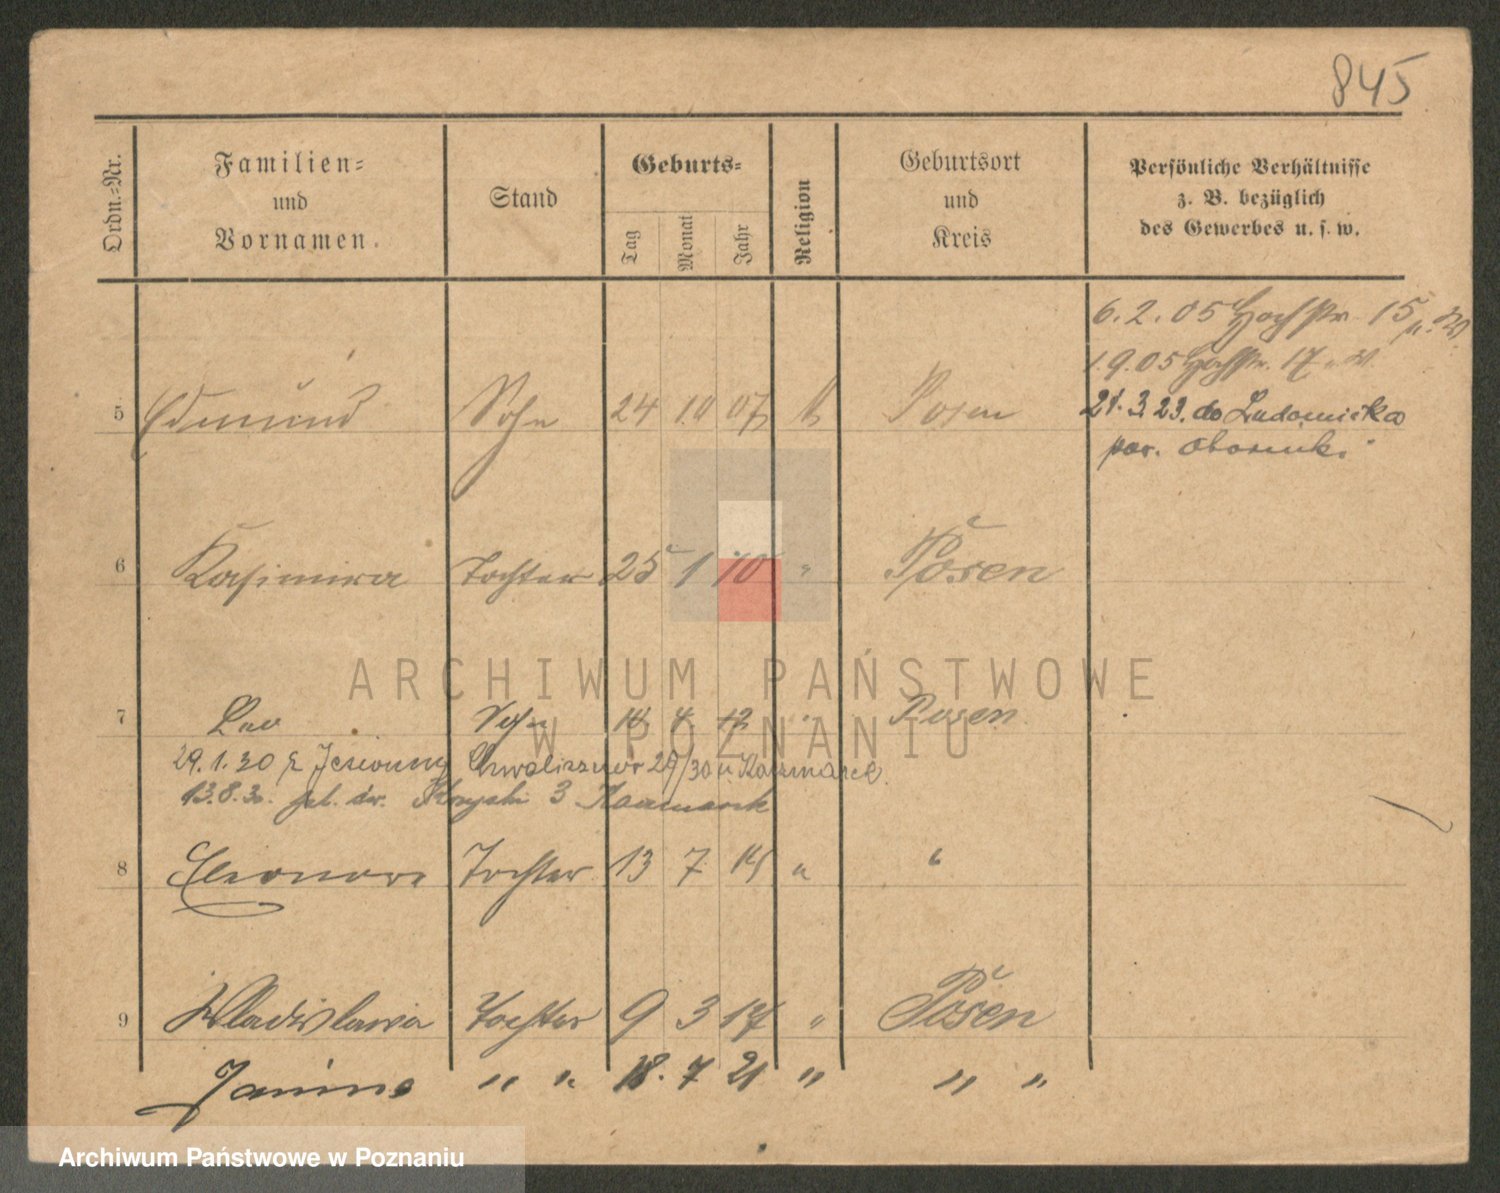 845
Ordn.-Nr. Familien- und Vornamen. Stand Geburts- Tag Monat Jahr Religion Geburtsort und Kreis Persönliche Verhältnisse z. B. bezüglich des Gewerbes u. s. w.
6. 2. 05 Hochstr. 15
1. 9. 05 Hochstr. 17
5 Edmund Sohn 24 10 07 k Posen 21. 3. 23. do Ludomicka
pow. Oborniki
6 Kasimira Tochter 25 1 10 " Posen
7 Leo Sohn 4 12 " Posen
29. 1. 30 Chwaliszewo 29/30 u Kaczmarek
13. 8. 30. 3 Kaczmarek
8 Eleonora Tochter 13 7 14 " "
9 Wladislawa Tochter 9 3 17 " Posen
Janina " " 18. 7 21 " " "
ARCHIWUM PAŃSTWOWE
W POZNANIU
Archiwum Państwowe w Poznaniu